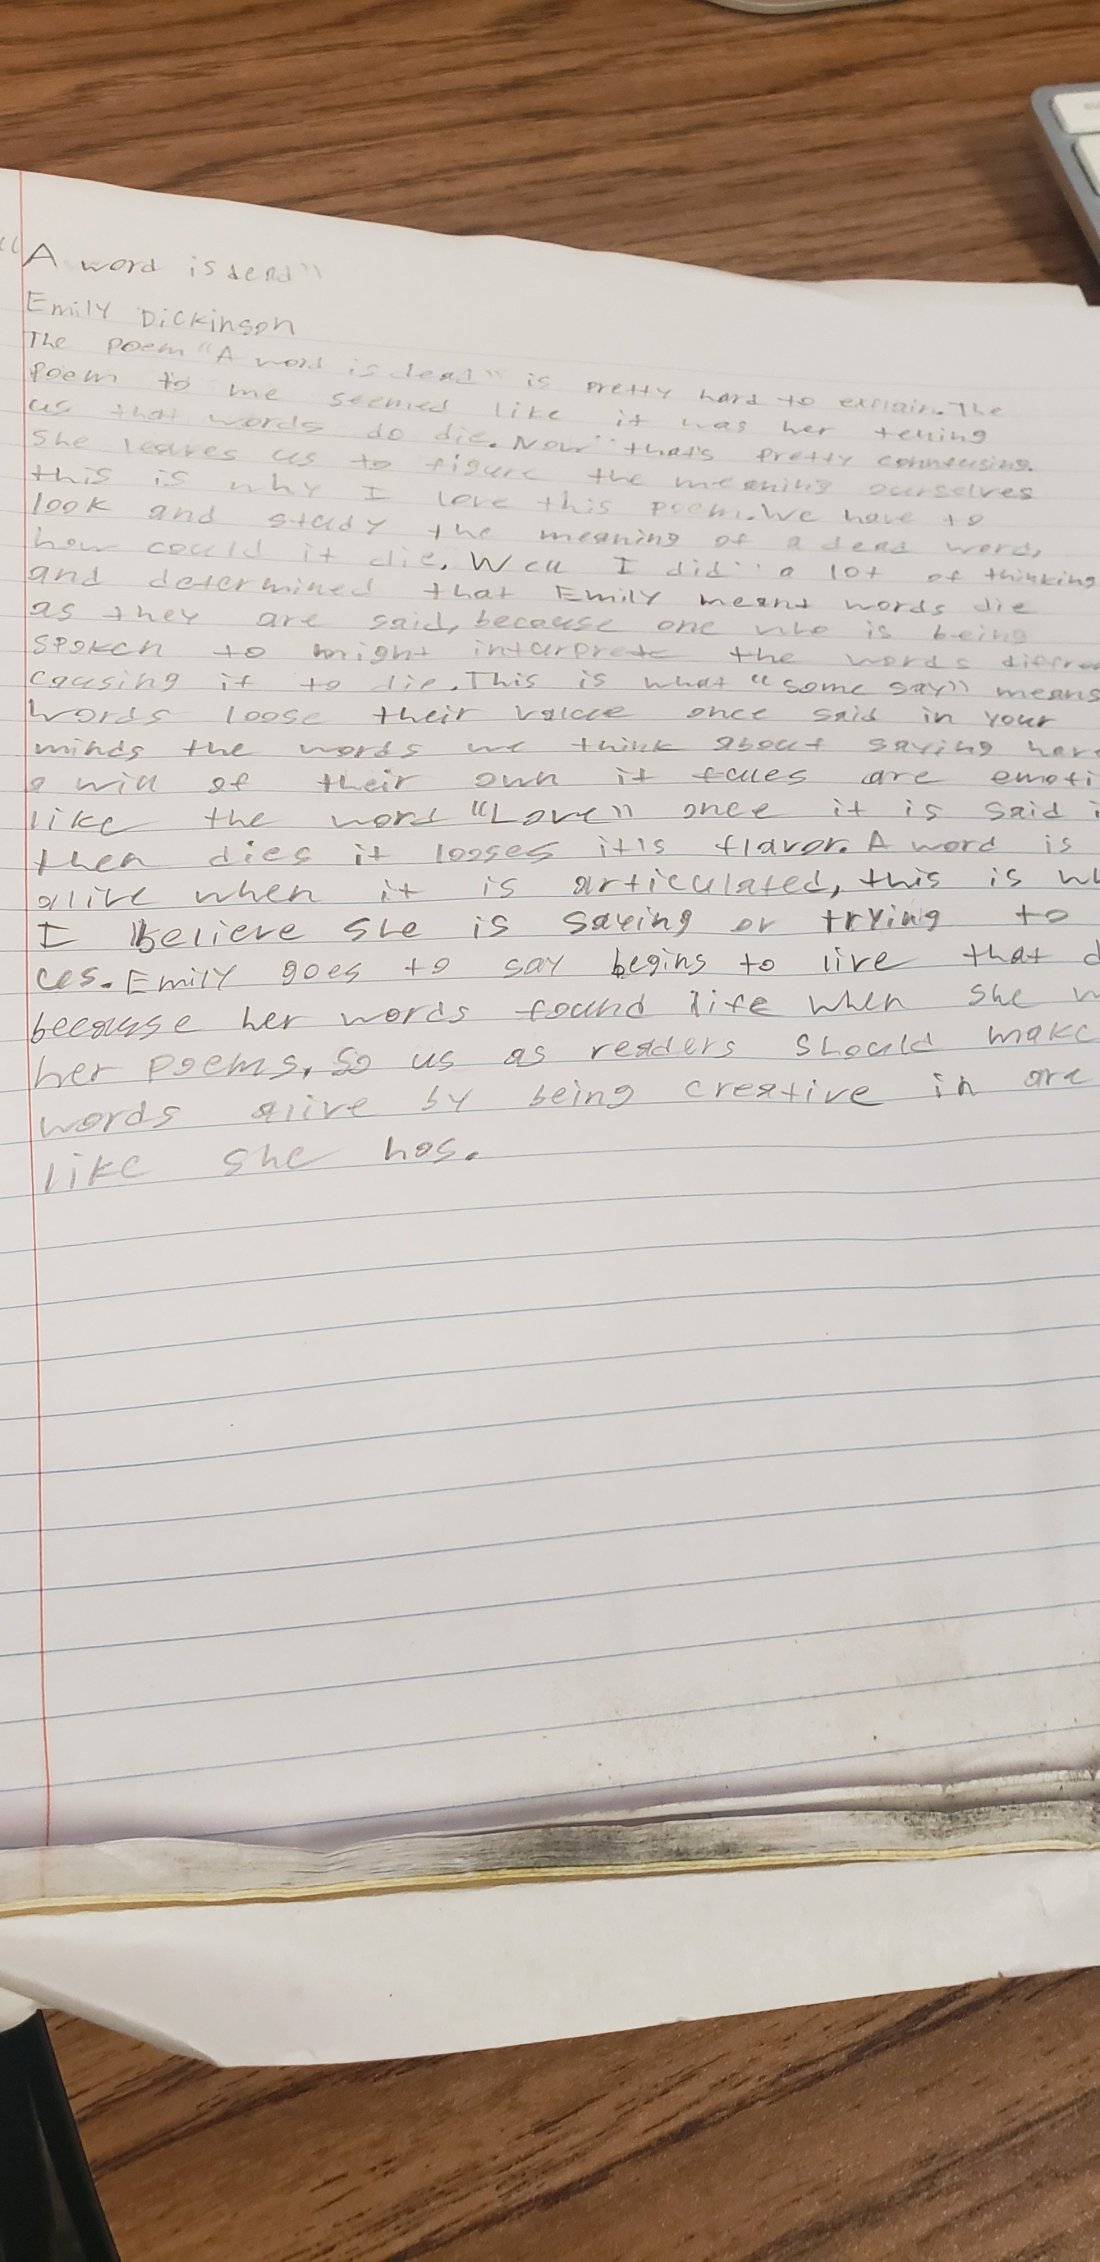 "A word is dead"
Emily Dickinson
The poem "A word is dead" is pretty hard to explain. The
poem to me seemed like it was her telling
us that words do die. Now that's pretty
she leaves us to figure the meaning ourselves
this is why I love this poem. We have to
look and study the meaning of a dead word,
how could it die. Well I did a lot of thinking
and determined that Emily meant words die
as they are said, because one who is being
spoken to might interprete the words
causing it to die. This is what "some say" means
words loose their value once said in your
minds the words we think about saying
a will of their own it are
like the word "Love" once it is said
then dies it looses it's flavor. A word is
alive when it is articulated, this is
I believe she is saying or trying to
Emily goes to say begins to live that
because her words found life when she
her poems, so us as readers should make
words alive by being creative in are
like she has.